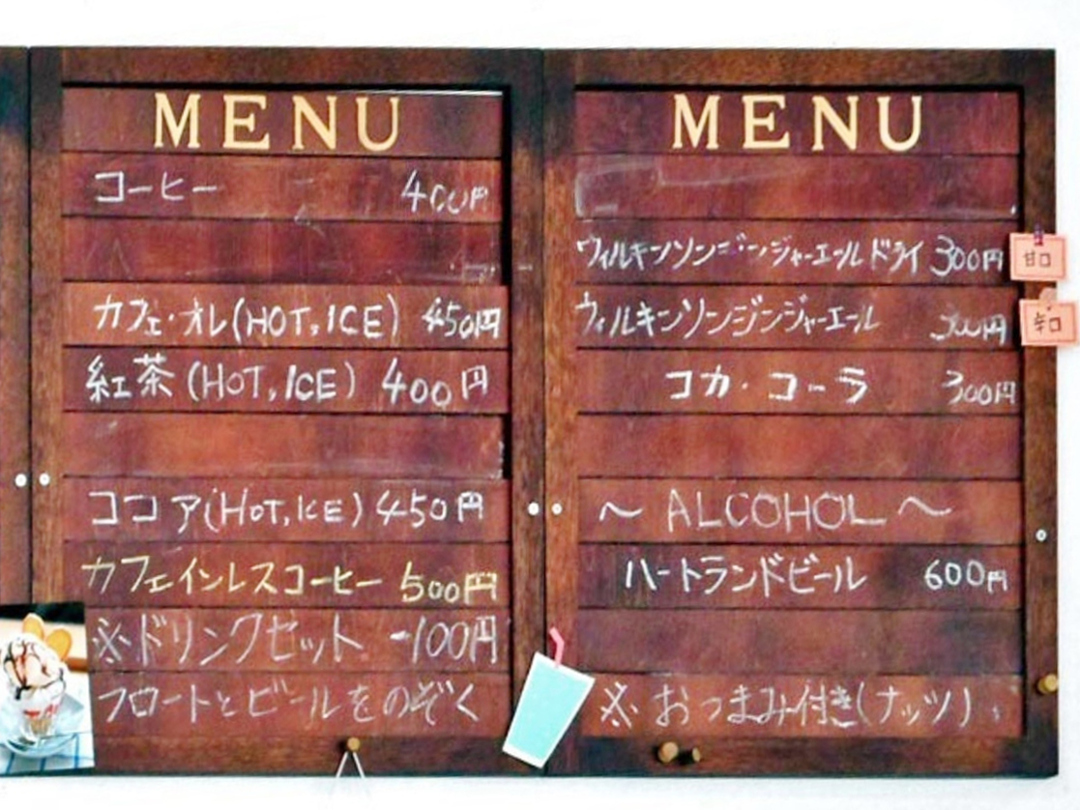 MENU
コーヒー 400円
カフェ・オレ(HOT,ICE) 450円
紅茶(HOT,ICE) 400円
ココア(HOT,ICE) 450円
カフェインレスコーヒー 500円
※ドリンクセット -100円
フロートとビールをのぞく
MENU
ウィルキンソンジンジャーエールドライ 300円
甘口
ウィルキンソンジンジャーエール 300円
辛口
コカ・コーラ 300円
～ ALCOHOL ～
ハートランドビール 600円
※おつまみ付き(ナッツ)